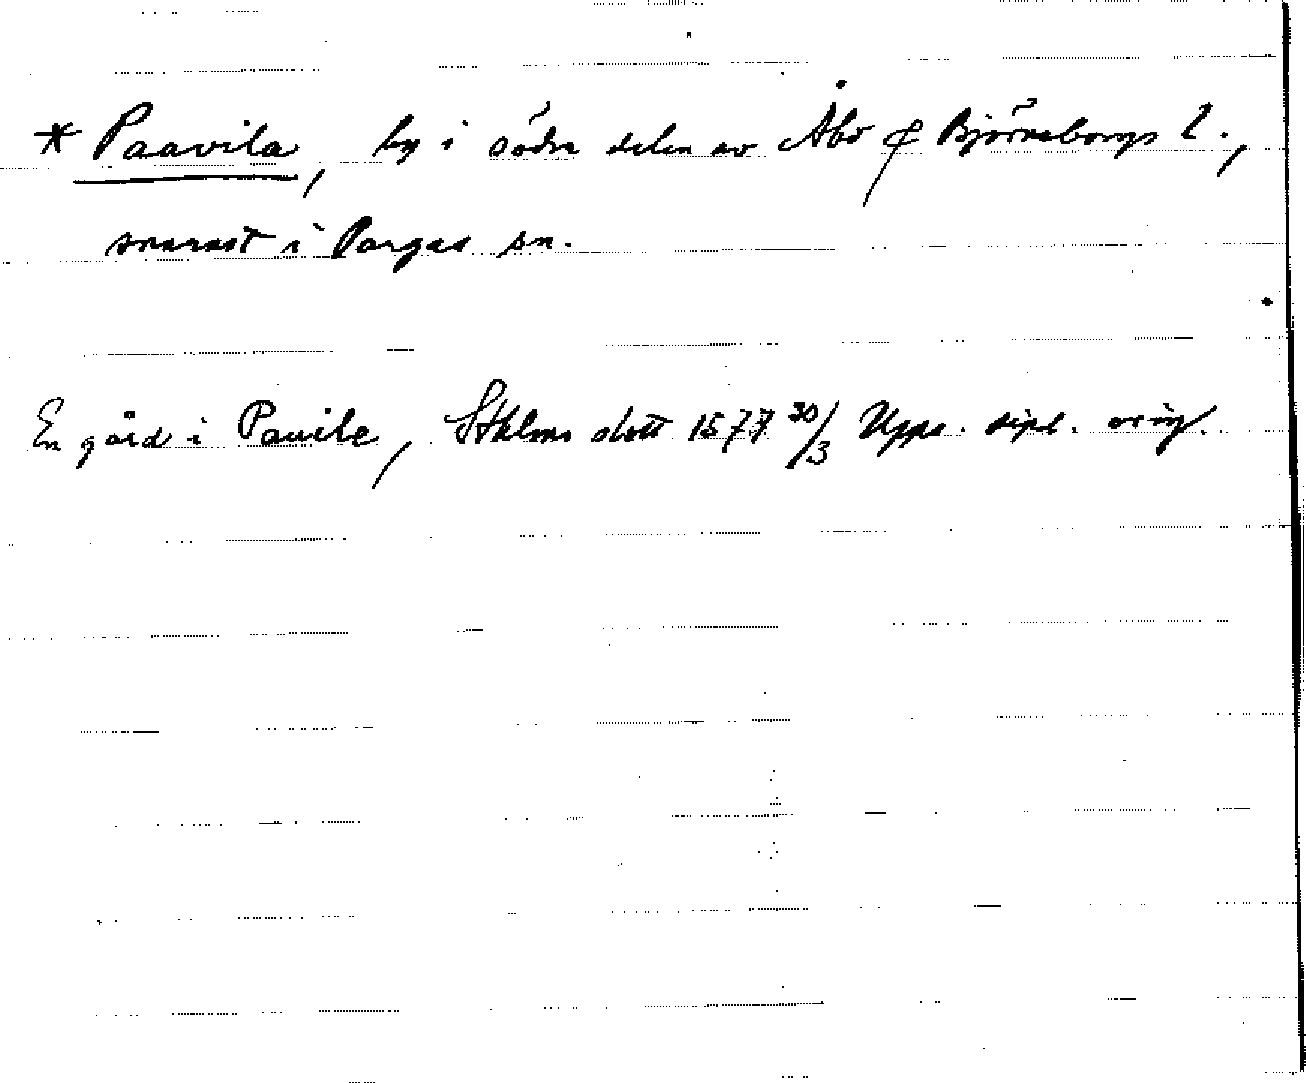 * Paavila, by i södra delen av Åbo & Björneborgs l.,
snarast i Pargas sn.
En gård i Pauile, Sthlms slott 1577 30/3 Upps. dipl. orig.